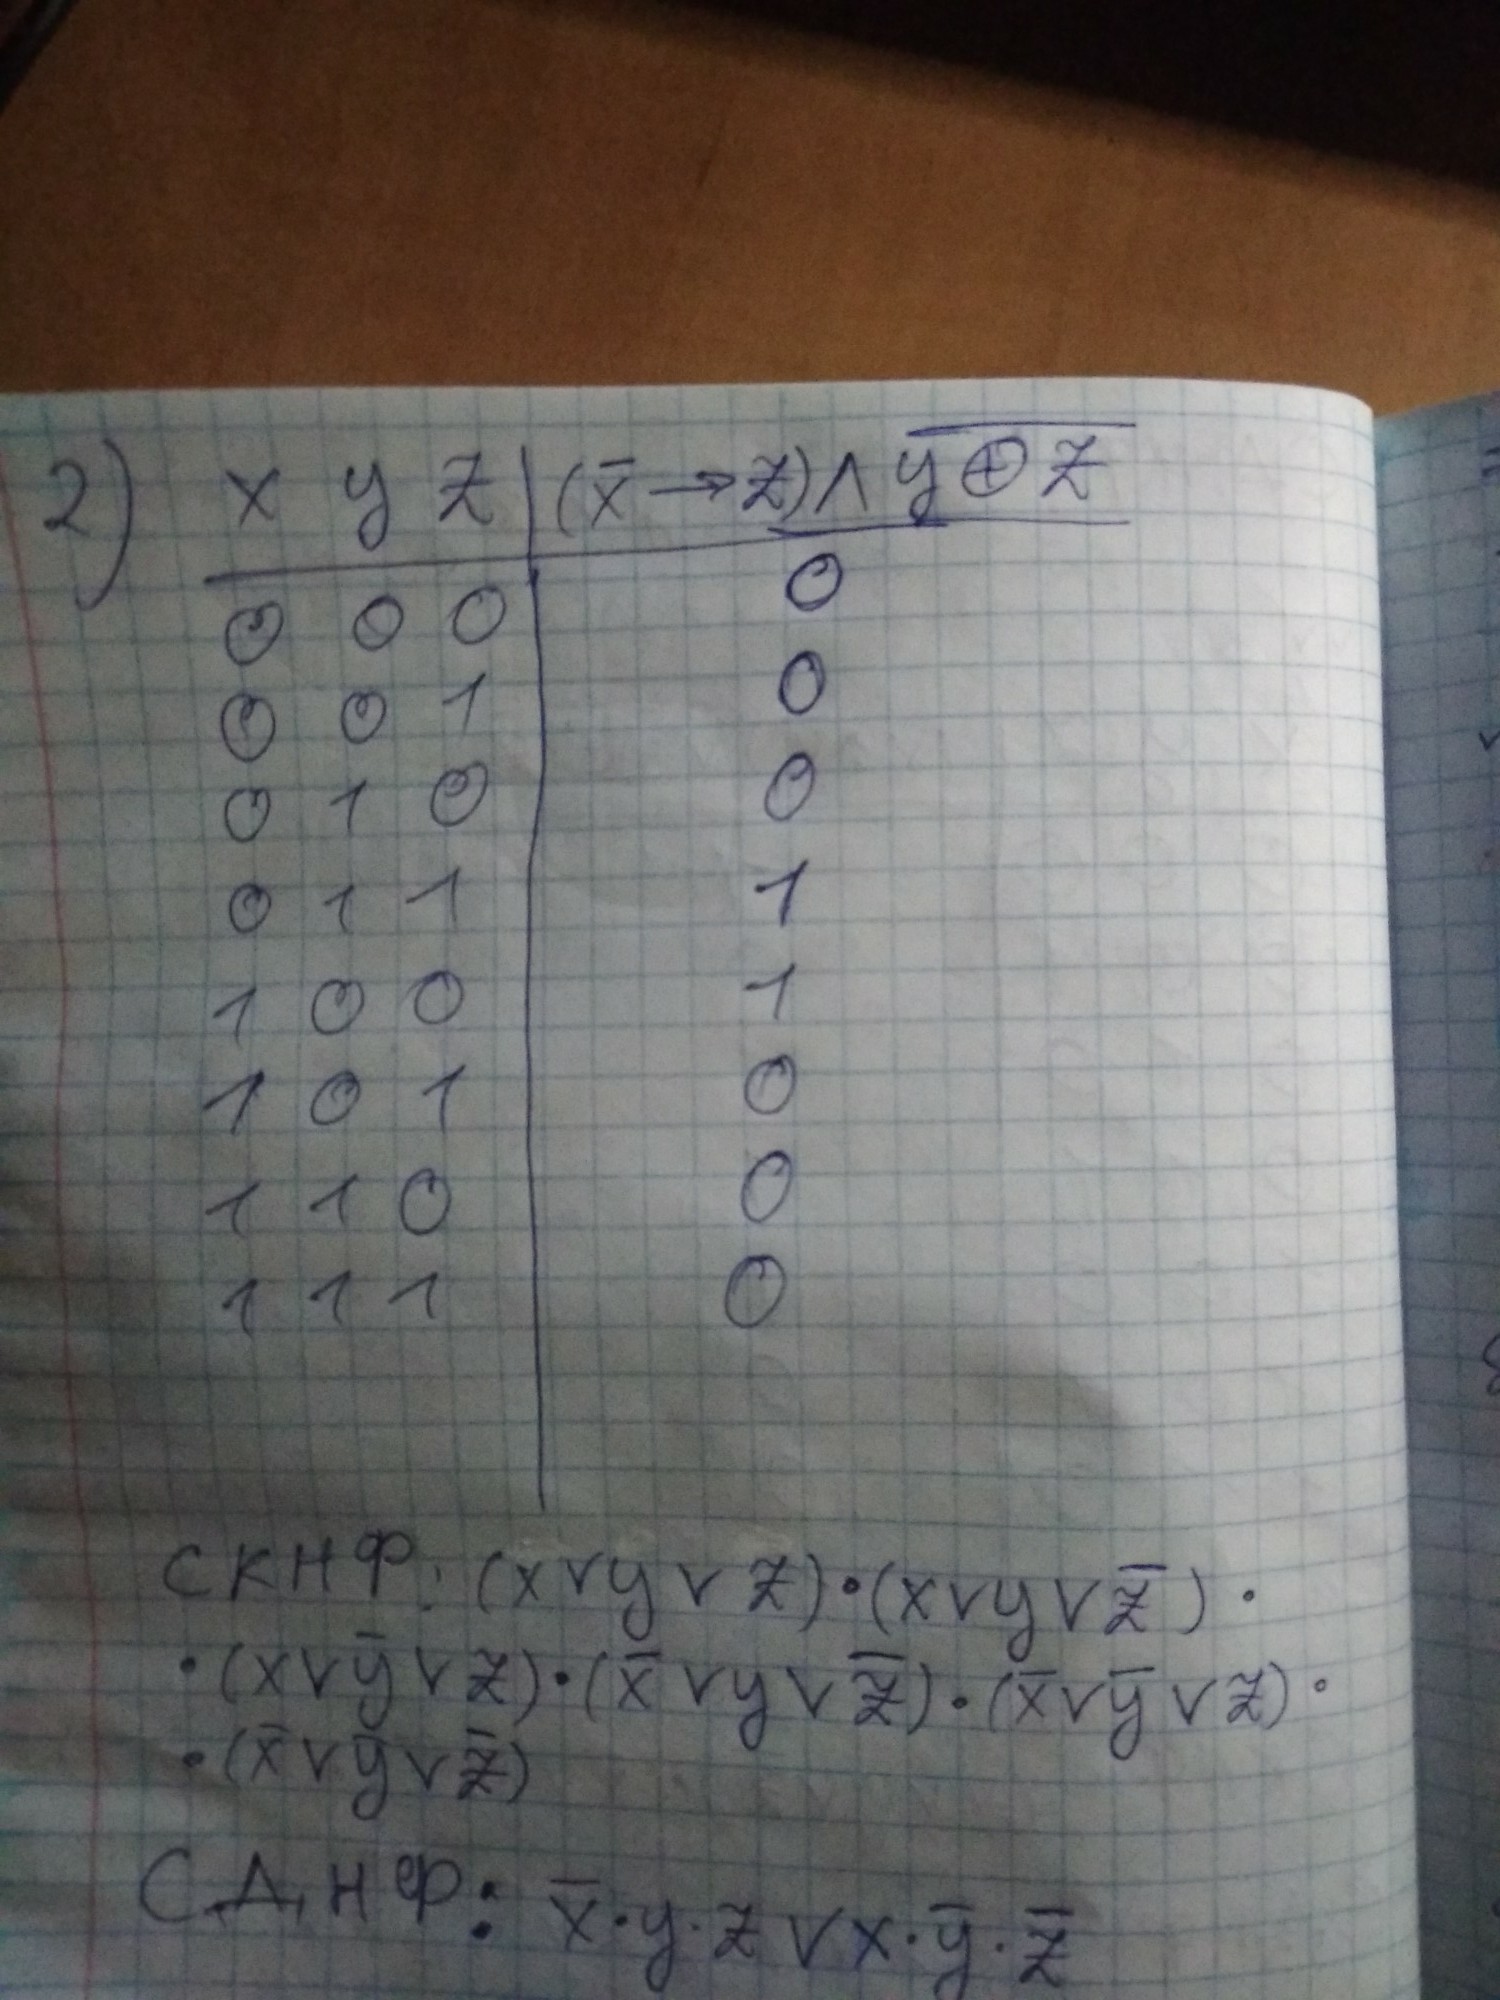 2) x y z | (x̄ → z) ∧ y̅ ⊕ z̅
0 0 0 | 0
0 0 1 | 0
0 1 0 | 0
0 1 1 | 1
1 0 0 | 1
1 0 1 | 0
1 1 0 | 0
1 1 1 | 0
СКНФ: (x ∨ y ∨ z) • (x ∨ y ∨ z̄) •
• (x ∨ ȳ ∨ z) • (x̄ ∨ y ∨ z̄) • (x̄ ∨ ȳ ∨ z) •
• (x̄ ∨ ȳ ∨ z̄)
СДНФ: x̄ · y · z ∨ x · ȳ · z̄